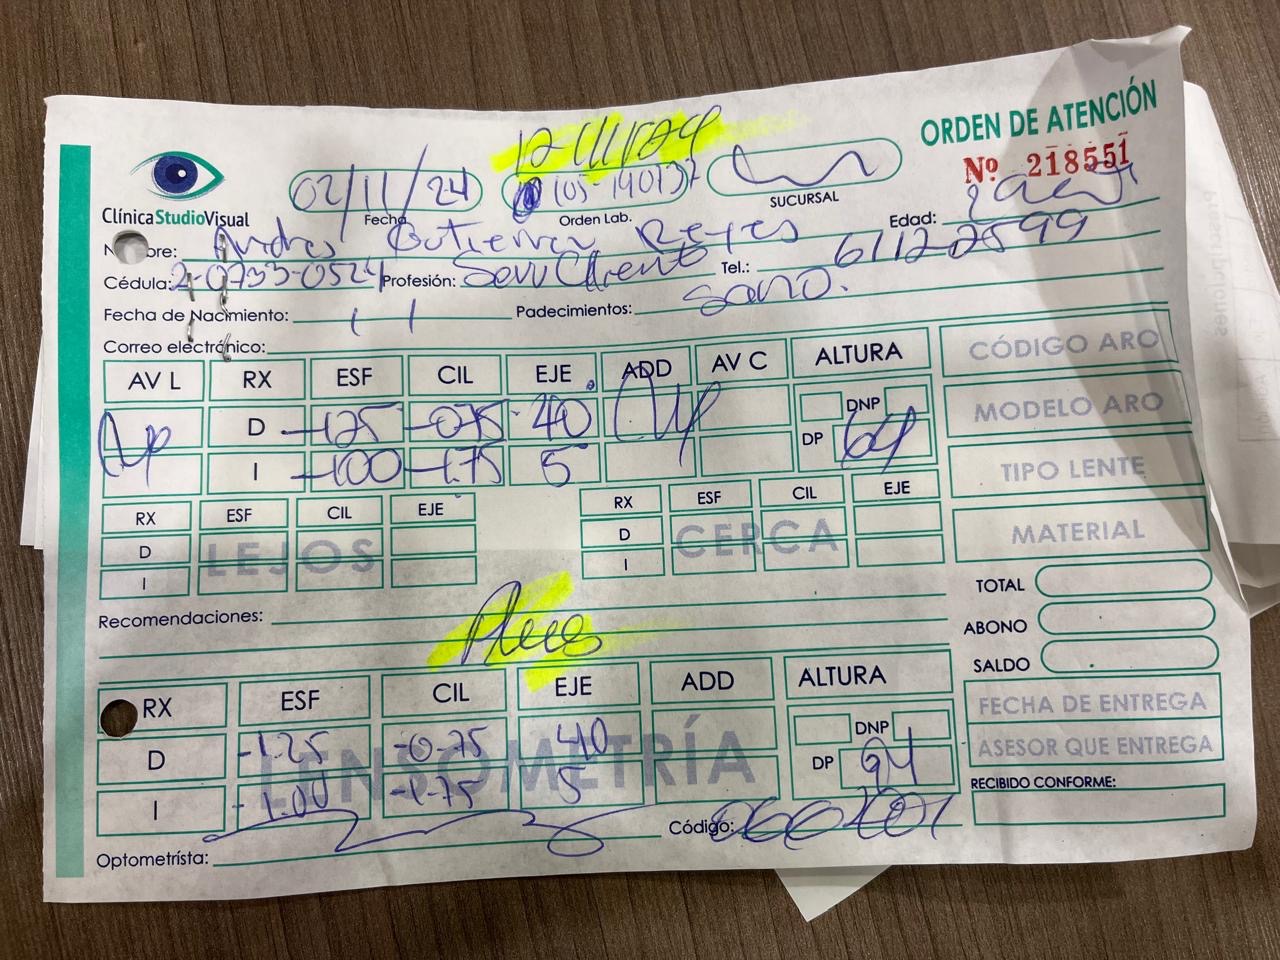 ORDEN DE ATENCIÓN
Nº 218551
ClínicaStudioVisual
02/11/24
Fecha
105-140137
Orden Lab.
SUCURSAL
Nombre: Andres Gutierrez Reyes
Edad:
Cédula: 2-0733-0524 Profesión: Serv Cliente Tel.: 6112-2599
Fecha de Nacimiento: / / Padecimientos: Sano.
Correo electrónico:
AV L RX ESF CIL EJE ADD AV C ALTURA
D -125 -075 40 DNP
I -100 -175 5 DP 64
CÓDIGO ARO
MODELO ARO
TIPO LENTE
MATERIAL
RX ESF CIL EJE
D
I
LEJOS
RX ESF CIL EJE
D
I
CERCA
TOTAL
ABONO
SALDO
Recomendaciones:
RX ESF CIL EJE ADD ALTURA
D -1.25 -0.75 40 DNP
I -1.00 -1.75 5 DP
LENSOMETRÍA
FECHA DE ENTREGA
ASESOR QUE ENTREGA
RECIBIDO CONFORME:
Código:
Optometrísta: